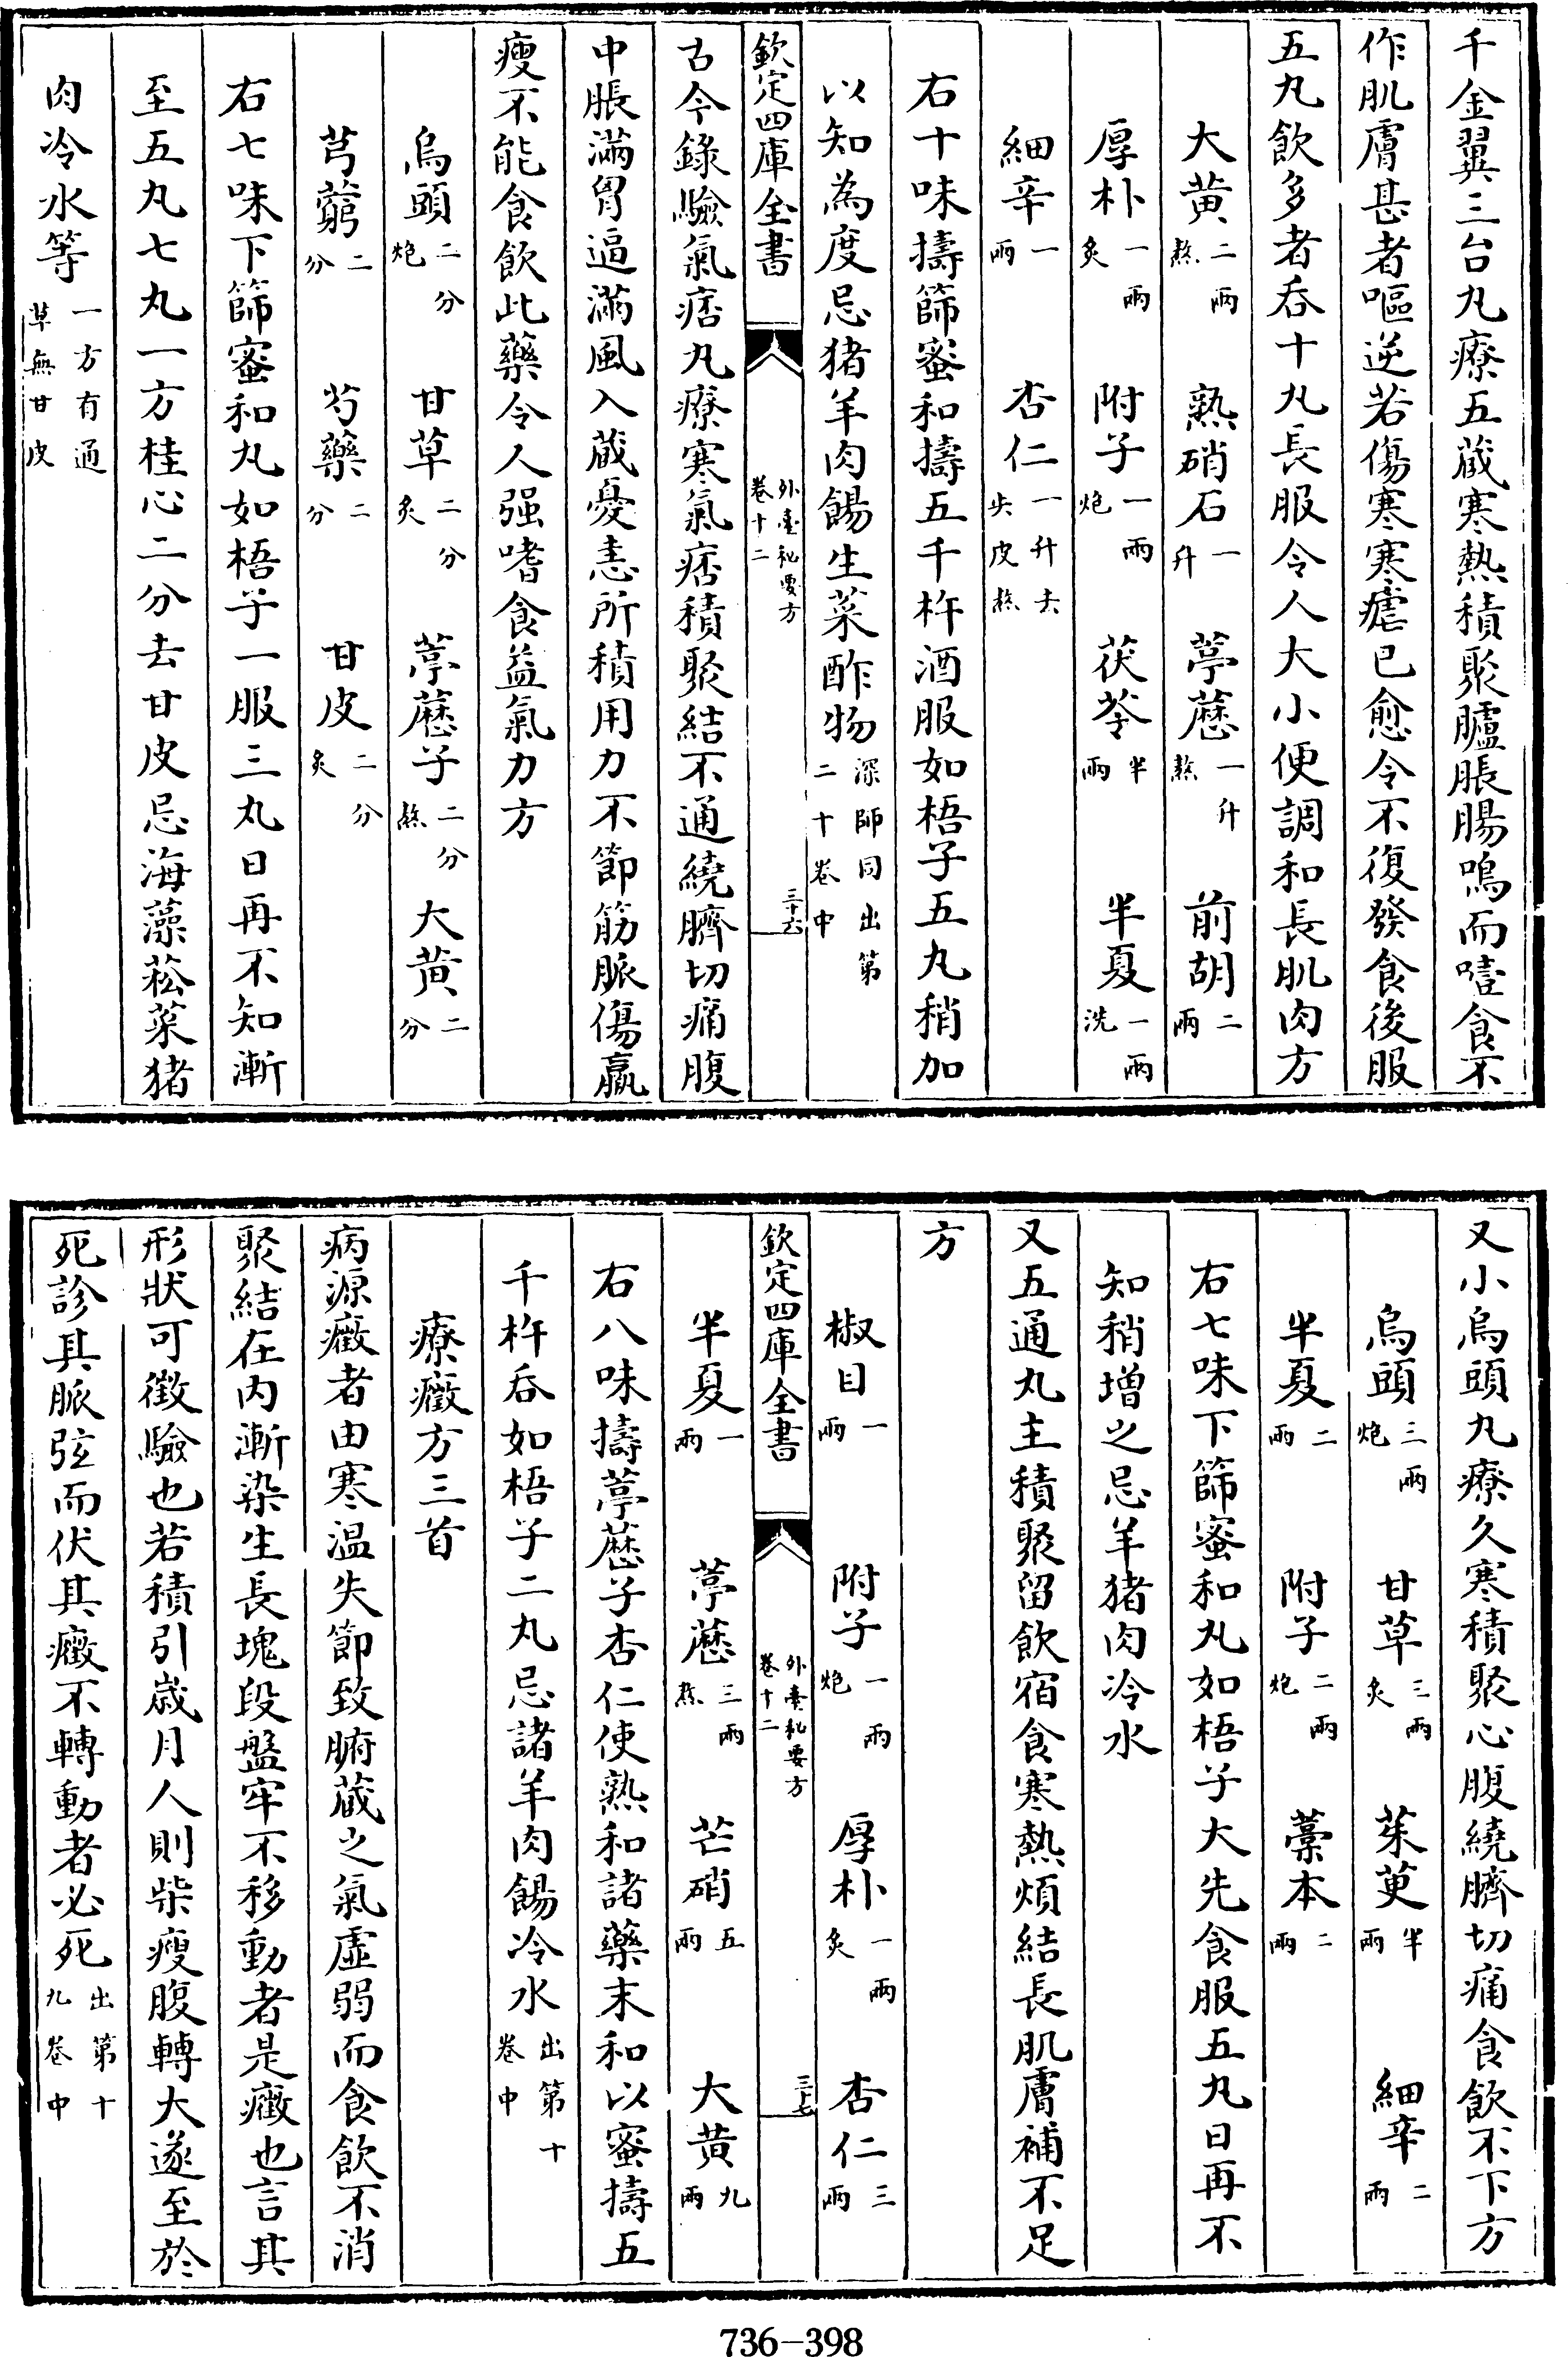 千金翼三台丸療五蔵寒熱積聚臚脹腸鳴而噫食不
作肌膚甚者嘔逆若傷寒寒瘧已愈令不復發食後服
五丸飲多者吞十丸長服令人大小便調和長肌肉方
大黄二兩熬 熟硝石一升 葶藶一升熬 前胡二兩
厚朴一兩炙 附子一兩炮 茯苓半兩 半夏一兩洗
細辛一兩 杏仁一升去尖皮熬
右十味擣篩蜜和擣五千杵酒服如梧子五丸稍加
以知為度忌猪羊肉餳生菜酢物深師同出第二十卷中
欽定四庫全書 外臺秘要方卷十二 三十六
古今錄驗氣痞丸療寒氣痞積聚結不通繞臍切痛腹
中脹滿胷逼滿風入蔵憂恚所積用力不節筋脈傷羸
瘦不能食飲此藥令人强嗜食益氣力方
烏頭二分炮 甘草二分炙 葶藶子二分熬 大黄二分
芎藭二分 芍藥二分 甘皮二分炙
右七味下篩蜜和丸如梧子一服三丸日再不知漸
至五丸七丸一方桂心二分去甘皮忌海藻菘菜猪
肉冷水等一方有通草無甘皮
又小烏頭丸療久寒積聚心腹繞臍切痛食飲不下方
烏頭三兩炮 甘草三兩炙 茱萸半兩 細辛二兩
半夏二兩 附子二兩炮 藁本二兩
右七味下篩蜜和丸如梧子大先食服五丸日再不
知稍增之忌羊猪肉冷水
又五通丸主積聚留飲宿食寒熱煩結長肌膚補不足
方
椒目一兩 附子一兩炮 厚朴一兩炙 杏仁三兩
欽定四庫全書 外臺秘要方卷十二 三十七
半夏一兩 葶藶三兩熬 芒硝五兩 大黄九兩
右八味擣葶藶子杏仁使熟和諸藥末和以蜜擣五
千杵吞如梧子二丸忌諸羊肉餳冷水出第十卷中
療癥方三首
病源癥者由寒温失節致腑蔵之氣虛弱而食飲不消
聚結在内漸染生長塊段盤牢不移動者是癥也言其
形狀可徴驗也若積引歲月人則柴瘦腹轉大遂至於
死診其脈弦而伏其癥不轉動者必死出第十九卷中
736-398